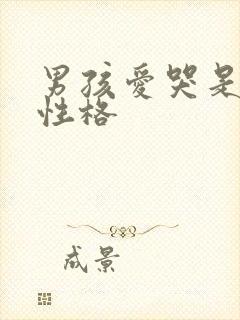 男孩愛哭是
性格
成景